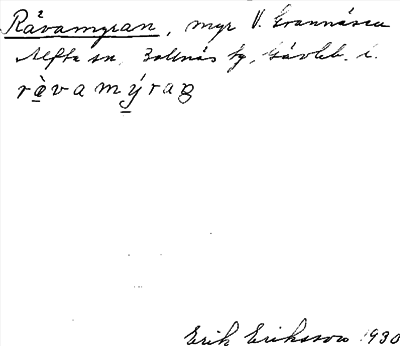 Råvamyran, myr V. Grannäsen
Alfta sn, Bollnäs tg, Gävleb. l.
rèvamýrag
Erik Eriksson 1930